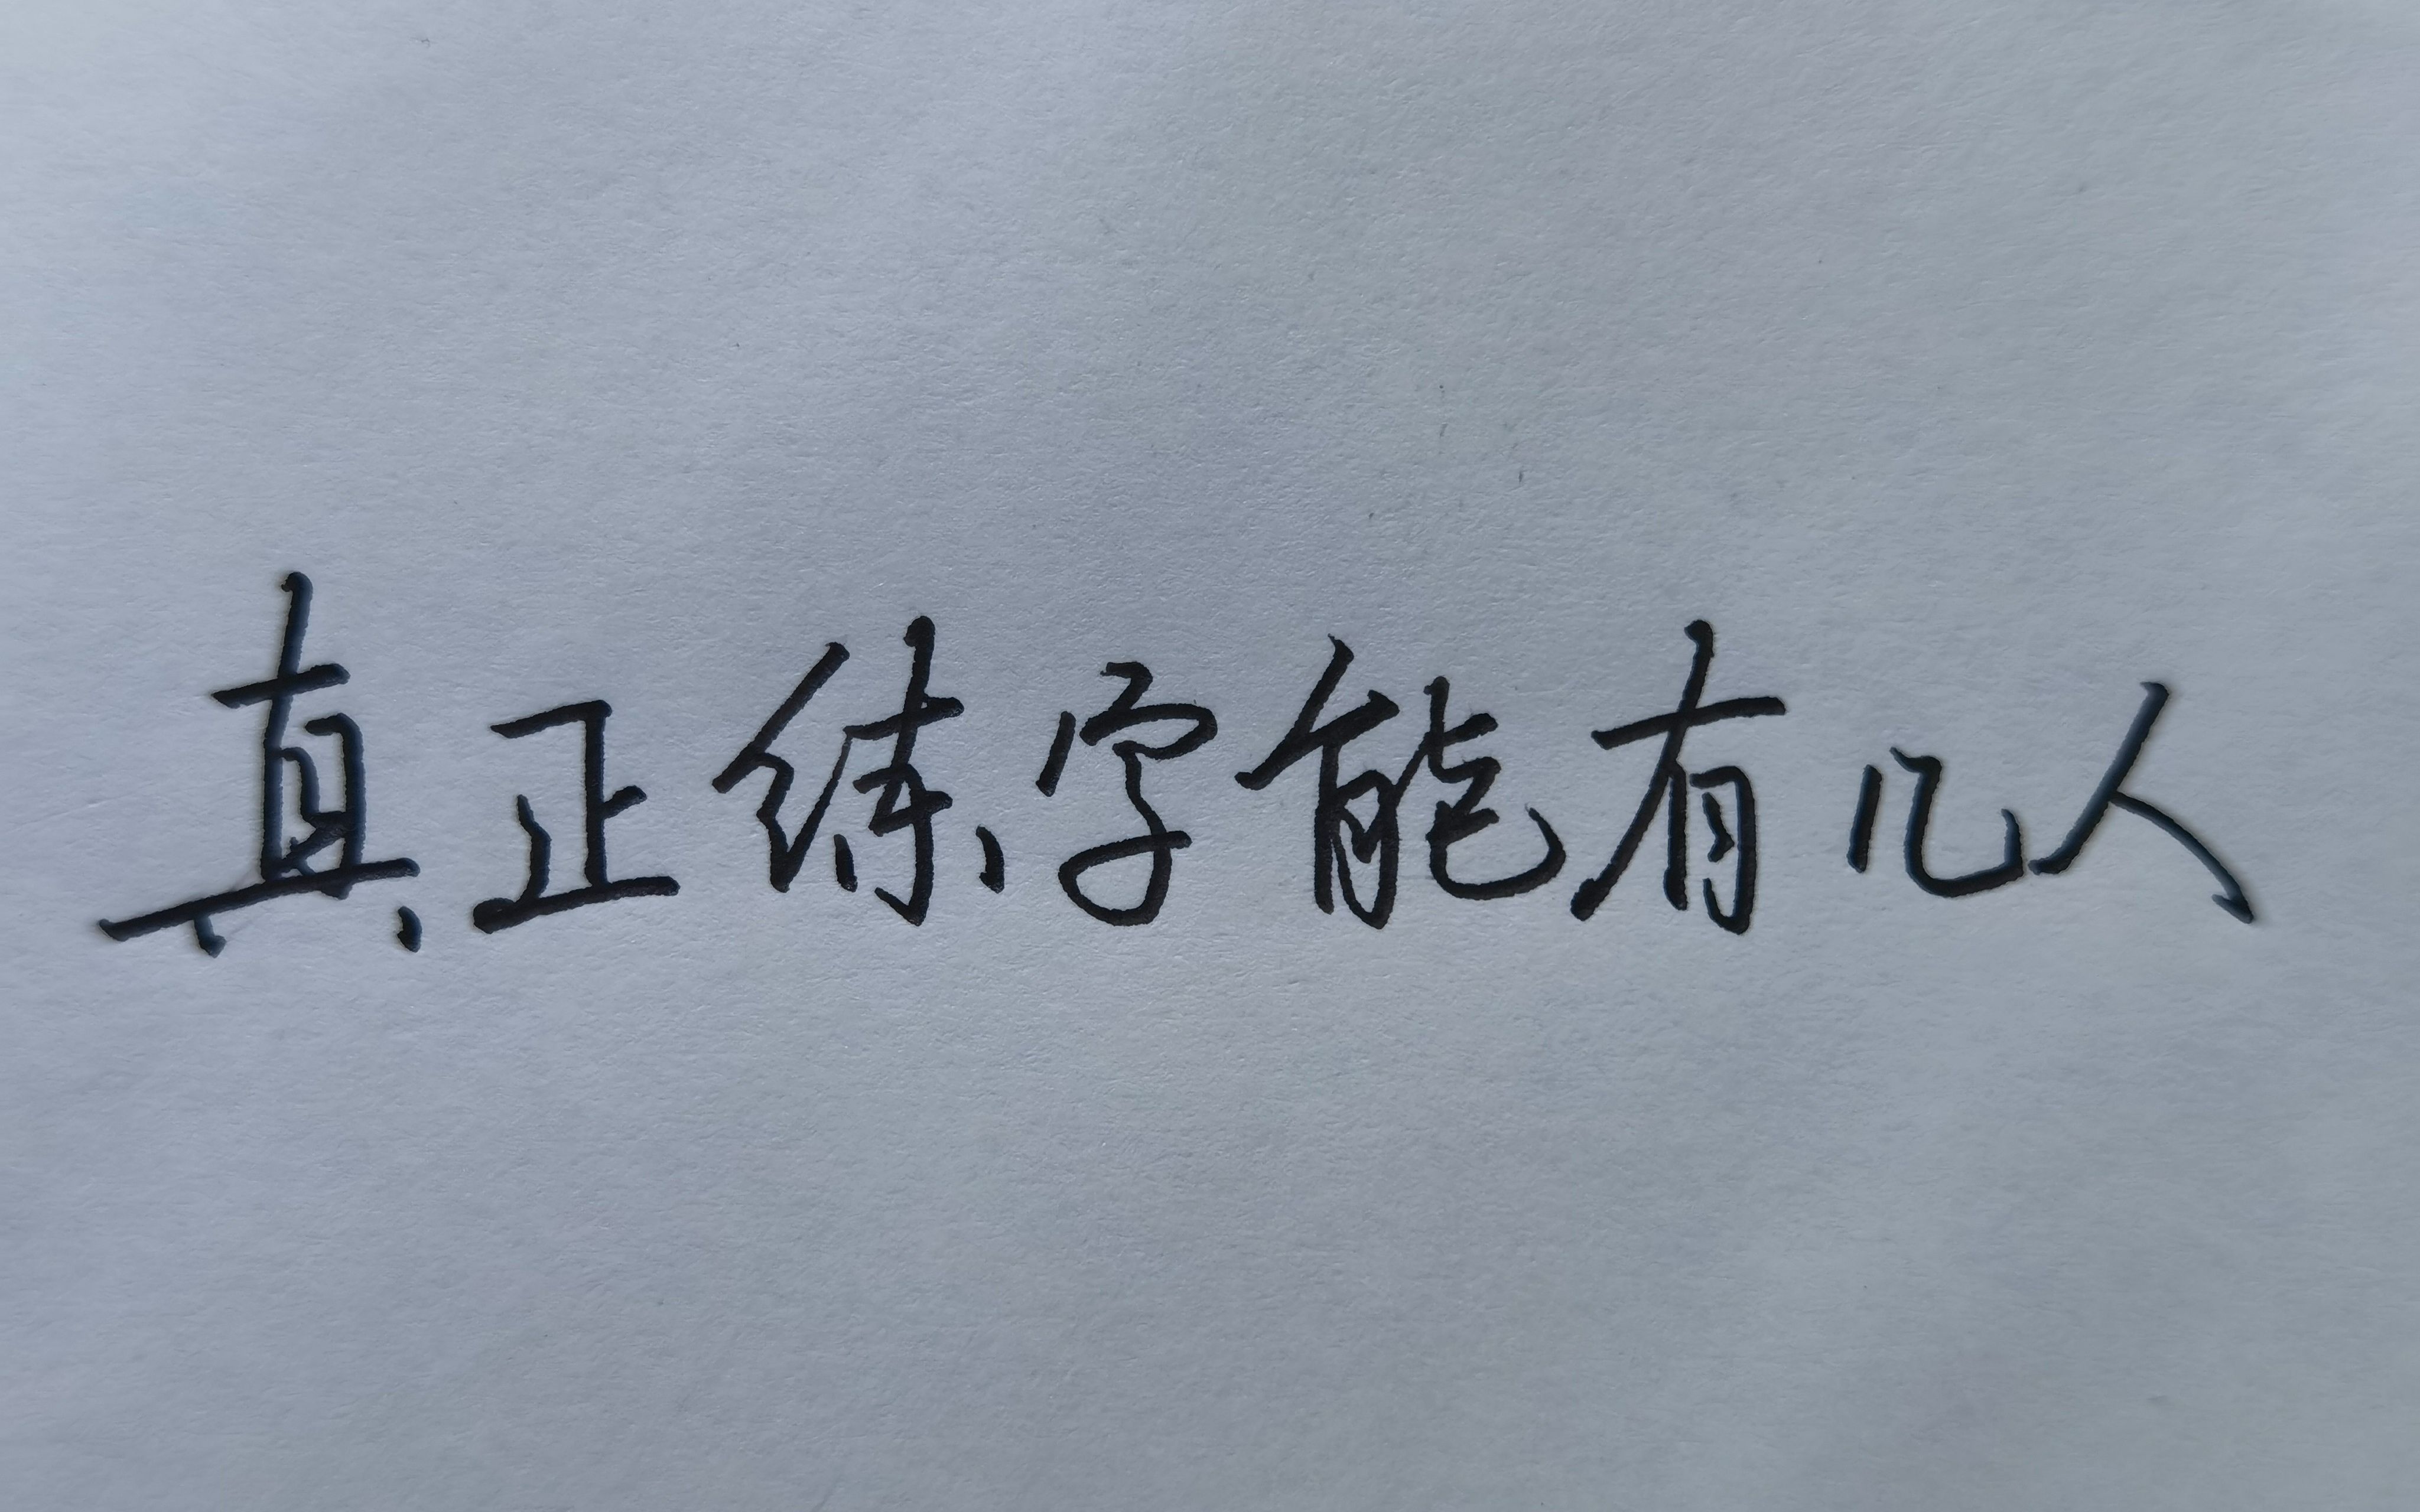 真正练字能有几人